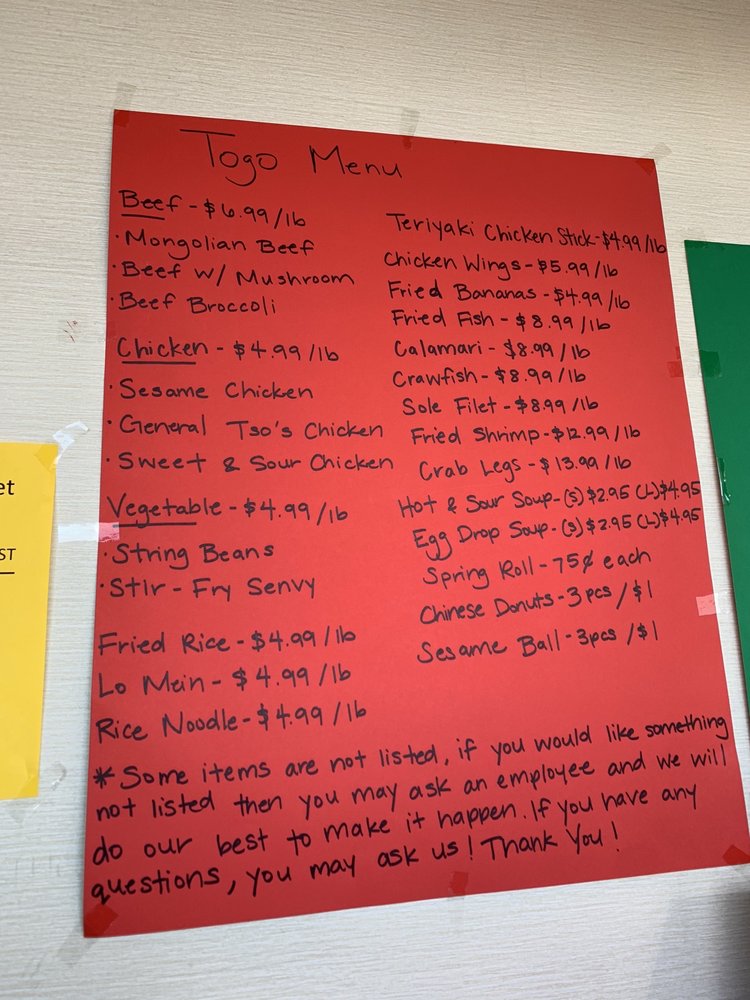 Togo Menu
Beef - $6.99/lb
· Mongolian Beef
· Beef w/ Mushroom
· Beef Broccoli
Chicken - $4.99/lb
· Sesame Chicken
· General Tso's Chicken
· Sweet & Sour Chicken
Vegetable - $4.99/lb
· String Beans
· Stir-Fry Senvy
Fried Rice - $4.99/lb
Lo Mein - $4.99/lb
Rice Noodle - $4.99/lb
Teriyaki Chicken Stick - $4.99/lb
Chicken Wings - $5.99/lb
Fried Bananas - $4.99/lb
Fried Fish - $8.99/lb
Calamari - $8.99/lb
Crawfish - $8.99/lb
Sole Filet - $8.99/lb
Fried Shrimp - $12.99/lb
Crab Legs - $13.99/lb
Hot & Sour Soup - (S) $2.95 (L) $4.95
Egg Drop Soup - (S) $2.95 (L) $4.95
Spring Roll - 75¢ each
Chinese Donuts - 3 pcs / $1
Sesame Ball - 3pcs / $1
* Some items are not listed, if you would like something
not listed then you may ask an employee and we will
do our best to make it happen. If you have any
questions, you may ask us! Thank You!